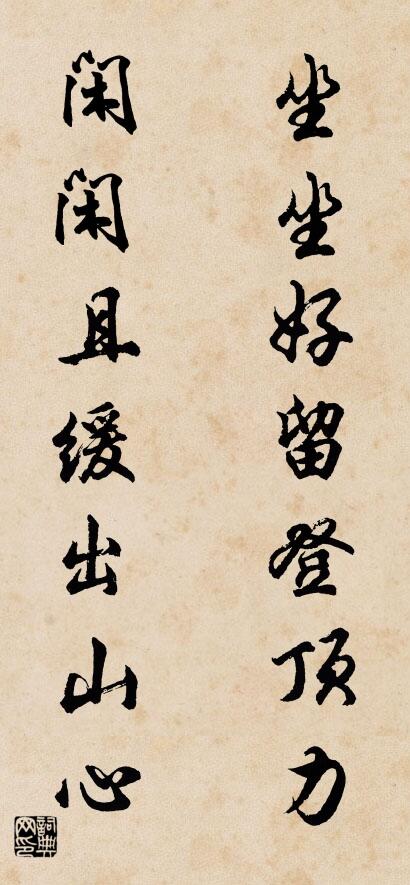 坐坐好留登顶力
闲闲且缓出山心
詞典网印